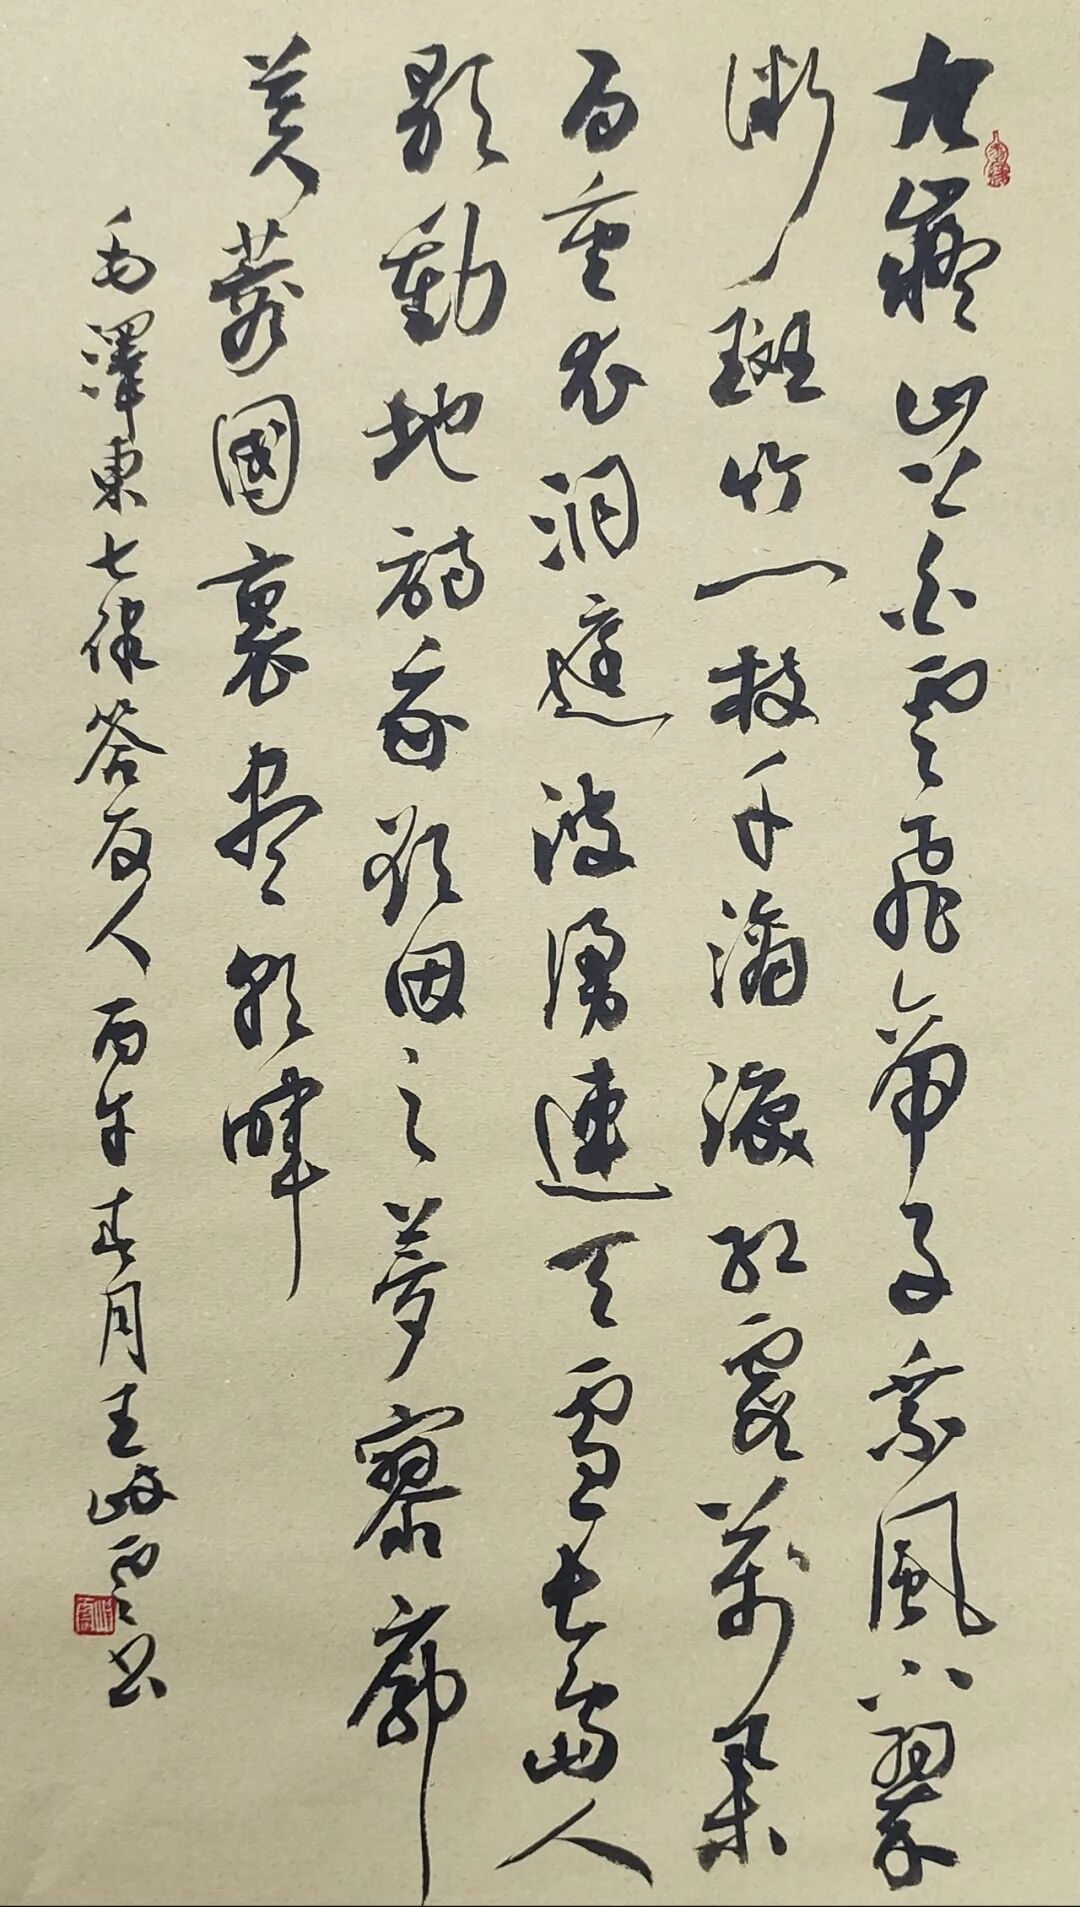 九嶷山上白雲飛帝子乘風下翠
微斑竹一枝千滴淚紅霞萬朵
百重衣洞庭波湧連天雪長島人
歌動地詩我欲因之夢寥廓
芙蓉國裏盡朝暉
毛澤東七律答友人丙午春月王岐雲书